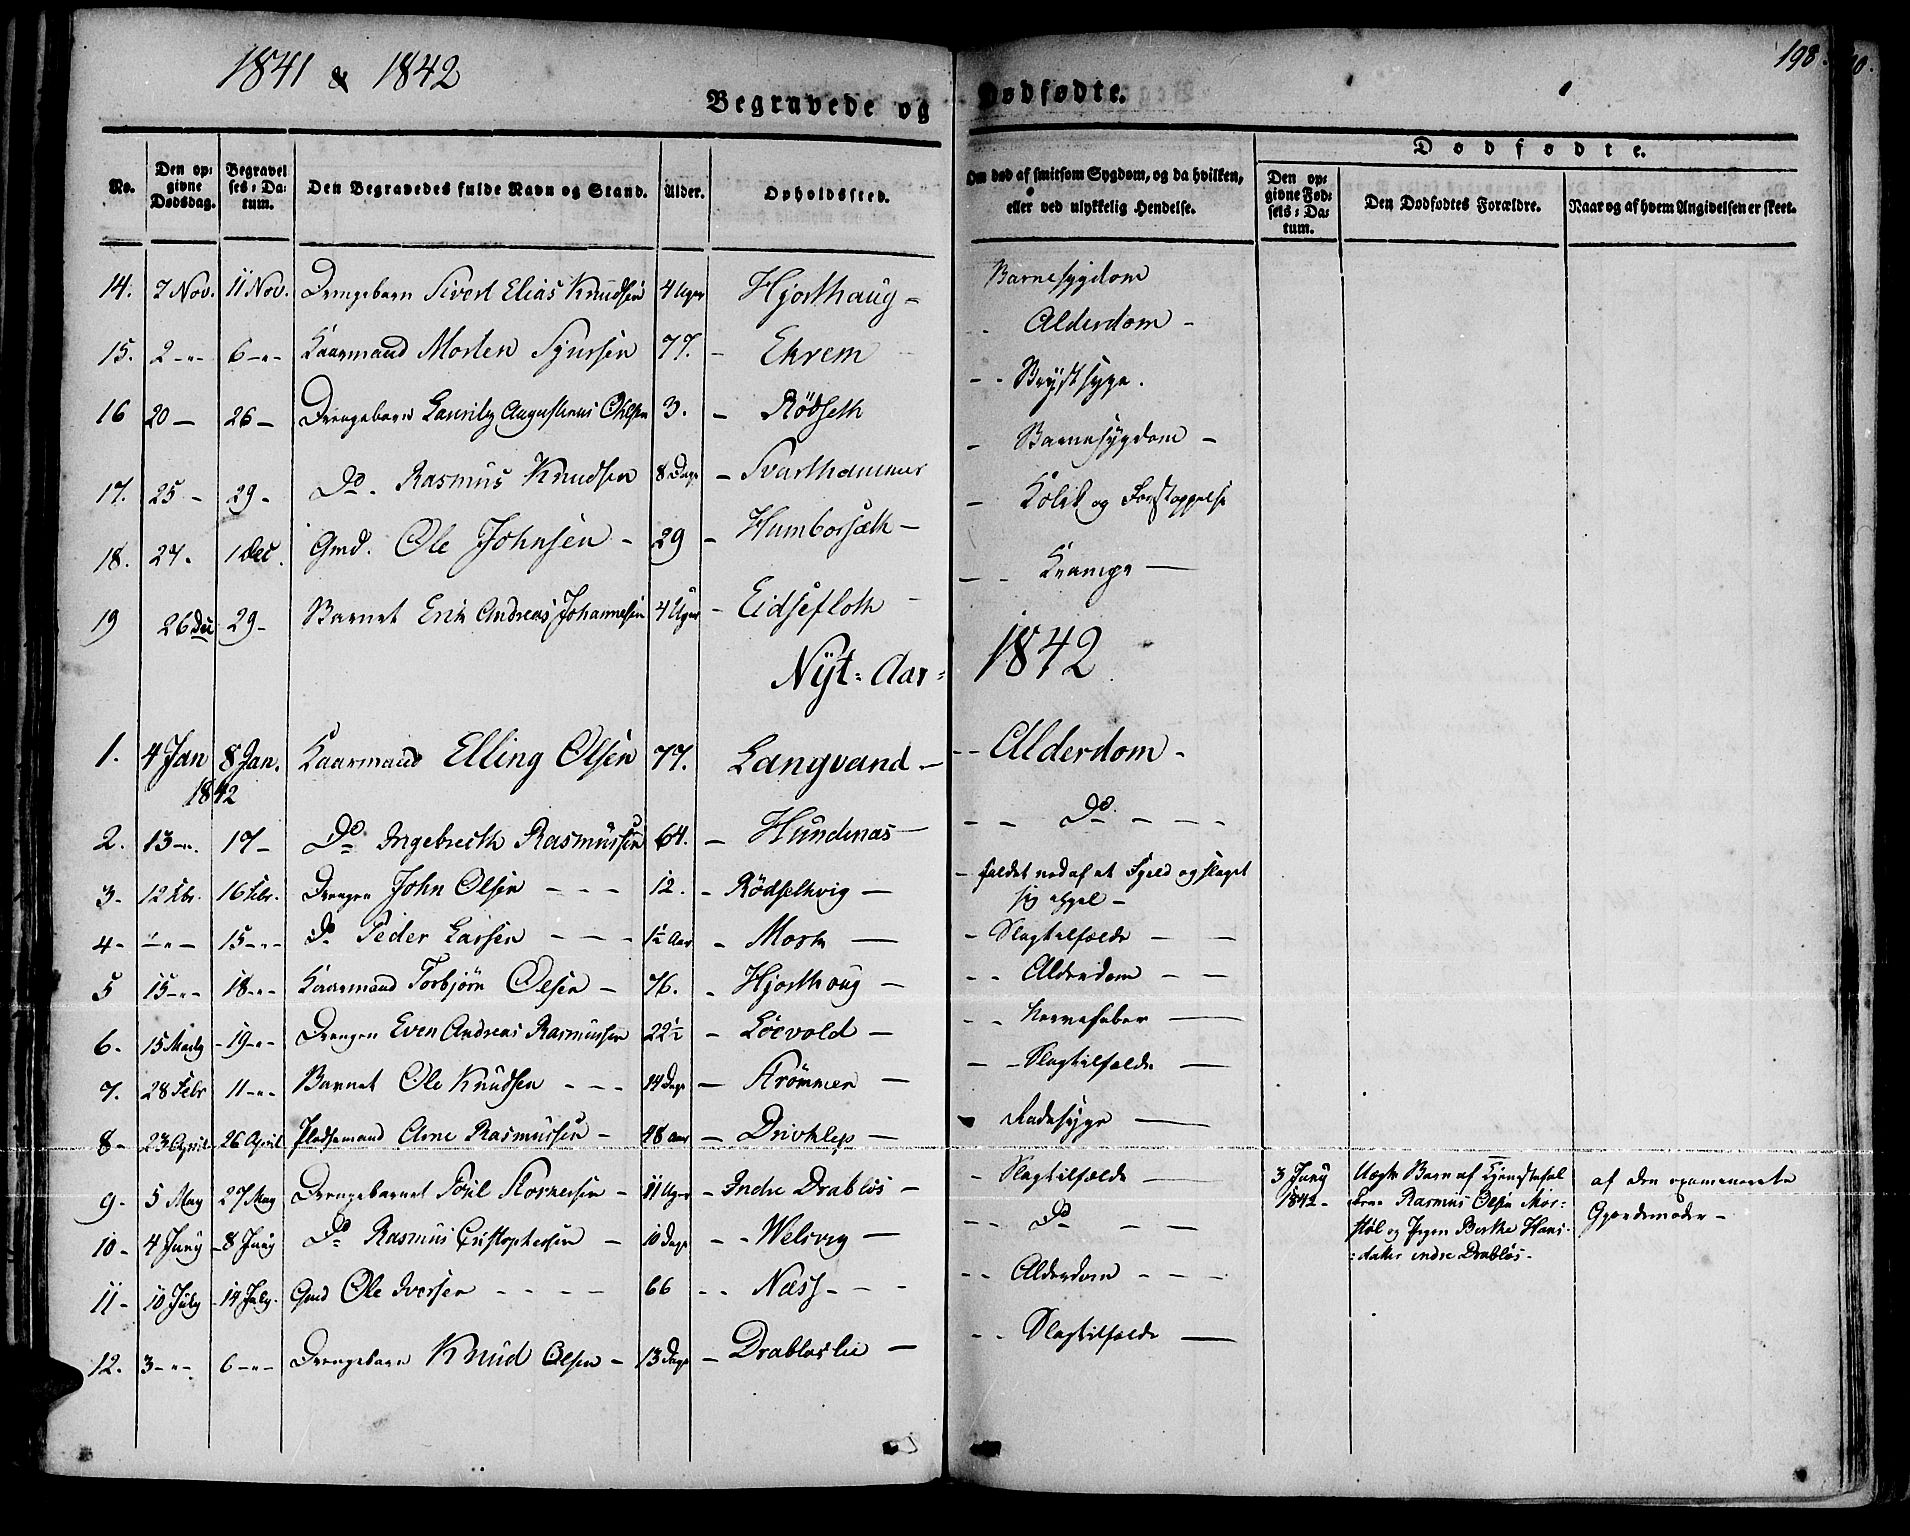 1841 & 1842
198.
Begravede og Dødfødte.
Dødfødte.
No. Den opgivne Dødsdag. Begravelses-Datum. Den Begravedes fulde Navn og Stand. Alder. Opholdssted. Om død af smitsom Sygdom, og da hvilken, eller ved ulykkelig Hendelse. Den opgivne Fødsels-Datum. Den Dødfødtes Forældre. Naar og af hvem Angivelsen er skeet.
14. 7 Nov. 11 Nov. Drengebarn Sivert Elias Knudsen 4 Uger Hjorthaug - Barnesygdom
15. 2 -"- 6 -"- Kaarmand Morten Sjursen 77. - Ekrem - - Alderdom -
16 20 - 26 - Drengebarn Lauritz Augustinus Ohlsen 3. - Rödseth - - Brystsyge.
17. 25 - 29 - Do. Rasmus Knudsen 8 Dage - Svarthammer - Barnesygdom -
18. 27. 1 Dec. Gmd. Ole Johnsen - 29 - Humborsæth - - Kolik og Forstoppelse
19 26 Dec 29 - Barnet Erik Andreas Johannesen 4 Uger - Eidsefloth - - - Krampe -
Nyt-Aar- 1842
1. 4 Jan 8 Jan. Kaarmand Elling Olsen 77. Langvand - - - Alderdom -
1842
2. 13 -"- 17 - Do Ingebrecth Rasmussen 64. - Hundenæs - - - Do. - - -
3 - 12 Fbr. 16 Fbr. Drengen John Olsen - - - 12. - Rödsethvig - - faldet ned af et Fjeld og slaget
sig ihjel -
4 - - " - 15 -"- Do Peder Larsen - - - 1½ Aar - Mork - - Slagtilfælde - -
5 15 -"- 18 -"- Kaarmand Torbjörn Olsen - 76. - Hjorthoug - - - Alderdom - -
6 - 15 Marty - 19 -"- Drengen Even Andreas Rasmussen 22½ - Löevold - - - Nervefeber -
7. 28 Febr 11 -"- Barnet Ole Knudsen - - - 14 Dage - Strömmen - - - Slagtilfælde -
8 - 23 April 26 April Pladsemand Arne Rasmussen - 48 Aar - Drivklep - Radesyge -
9 - 5 May 27 May Drengebarnet - 11 Uger - Indre Drablös - - Slagtilfælde - -
3 Juny Uægte Barn af Tjenestefol- af den examinerede
1842 - kene Rasmus Olsen Mor- Gjordemoder -
støl og Pigen Berthe Hans-
datter indre Drablös -
10 - 4 Juny - 8 Juny Do Rasmus Cristophersen - 10 Dage - - Welsvig - - - Do - -
11 - 10 July - 14 July - Gmd Ole Iversen - - - - 66 - - Næss - - - - - Alderdom - - -
12. 3 -"- 6 -"- Drengebarn Knud Olsen - 13 Dage - Drabløslie - - - Slagtilfælde -